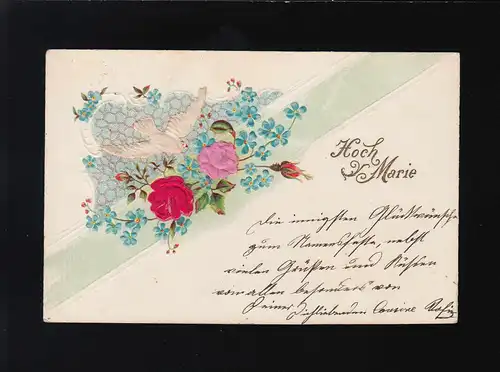 Hoch
Marie
Die innigsten Glückwünsche
zum Namensfeste, nebst
vielen Grüßen und Küssen
von allen besonders von
Deiner Dichliebenden Cousine